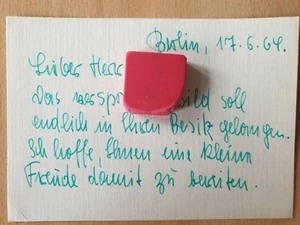 Berlin, 17.6.64.
Lieber Herr
Das verspro ild soll
endlich in Ihren Besitz gelangen.
Ich hoffe, Ihnen eine kleine
Freude damit zu bereiten.